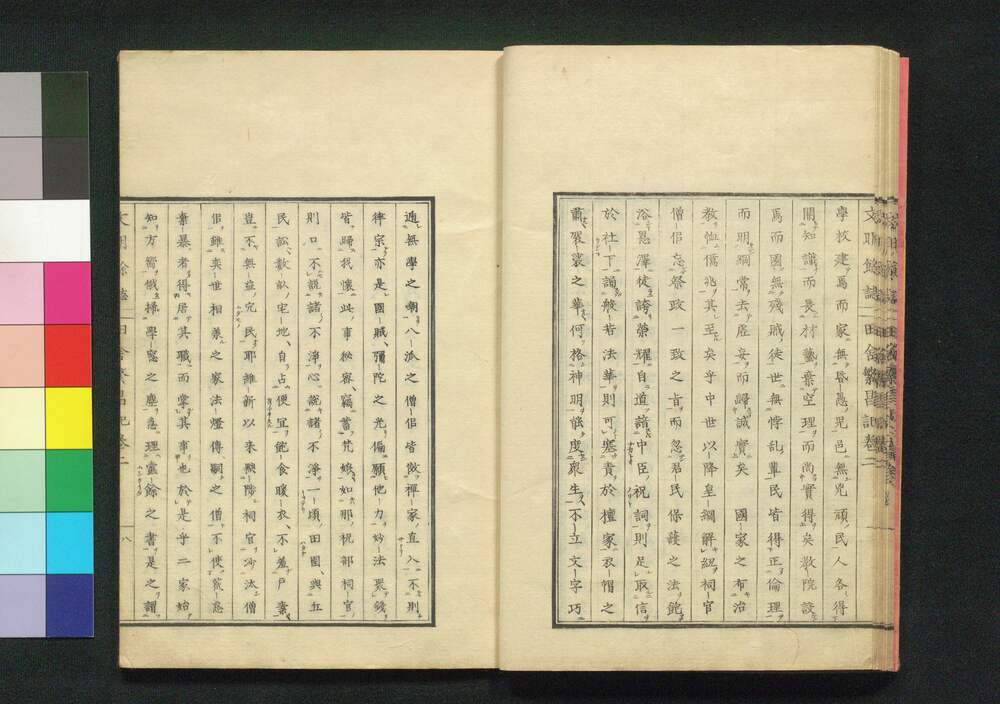 學校建焉而家無昏愚兒邑無兇頑民人各得
開知識而長材藝棄空理而尚實得矣教院設
焉而國無殘賊徒世無悖乱輩民皆得正倫理
而明綱常去虚妄而歸誠實矣 國家之布治
教恤儒兆其至矣乎中世以降皇綱解紐祠官
僧侶忘祭政一致之旨而忽君民保護之法飽
浴恩澤徒誇榮耀自道諳中臣祝詞則足取信
於社下誦般若法華則可塞責於檀家衣帽之
肅袈裟之華何格神明能度衆生不立文字巧
遁無學之嘲八派之僧侶皆倣禪家直入不則
律宗亦是國賊彌陀之光偏願他力妙法聚錢
皆歸我懷此事秘密竊蓄梵嫂如那祝部祠官
則口不謊諸不淨心說諸不淨一頃田園與五
民訟數畝宅地自占便宜飽食暖衣不羞尸素
豈不無益冗民耶維新以来黜陟祠官沙汰僧
侶雖奕世相兼之家法燈傳嗣之僧不使荒怠
棄暴者得居其職而掌其事也於是乎二家始
知方嚮俄掃學窓之塵急理蠹餘之書是之謂
文明餘誌 田舍繁昌記卷二
八